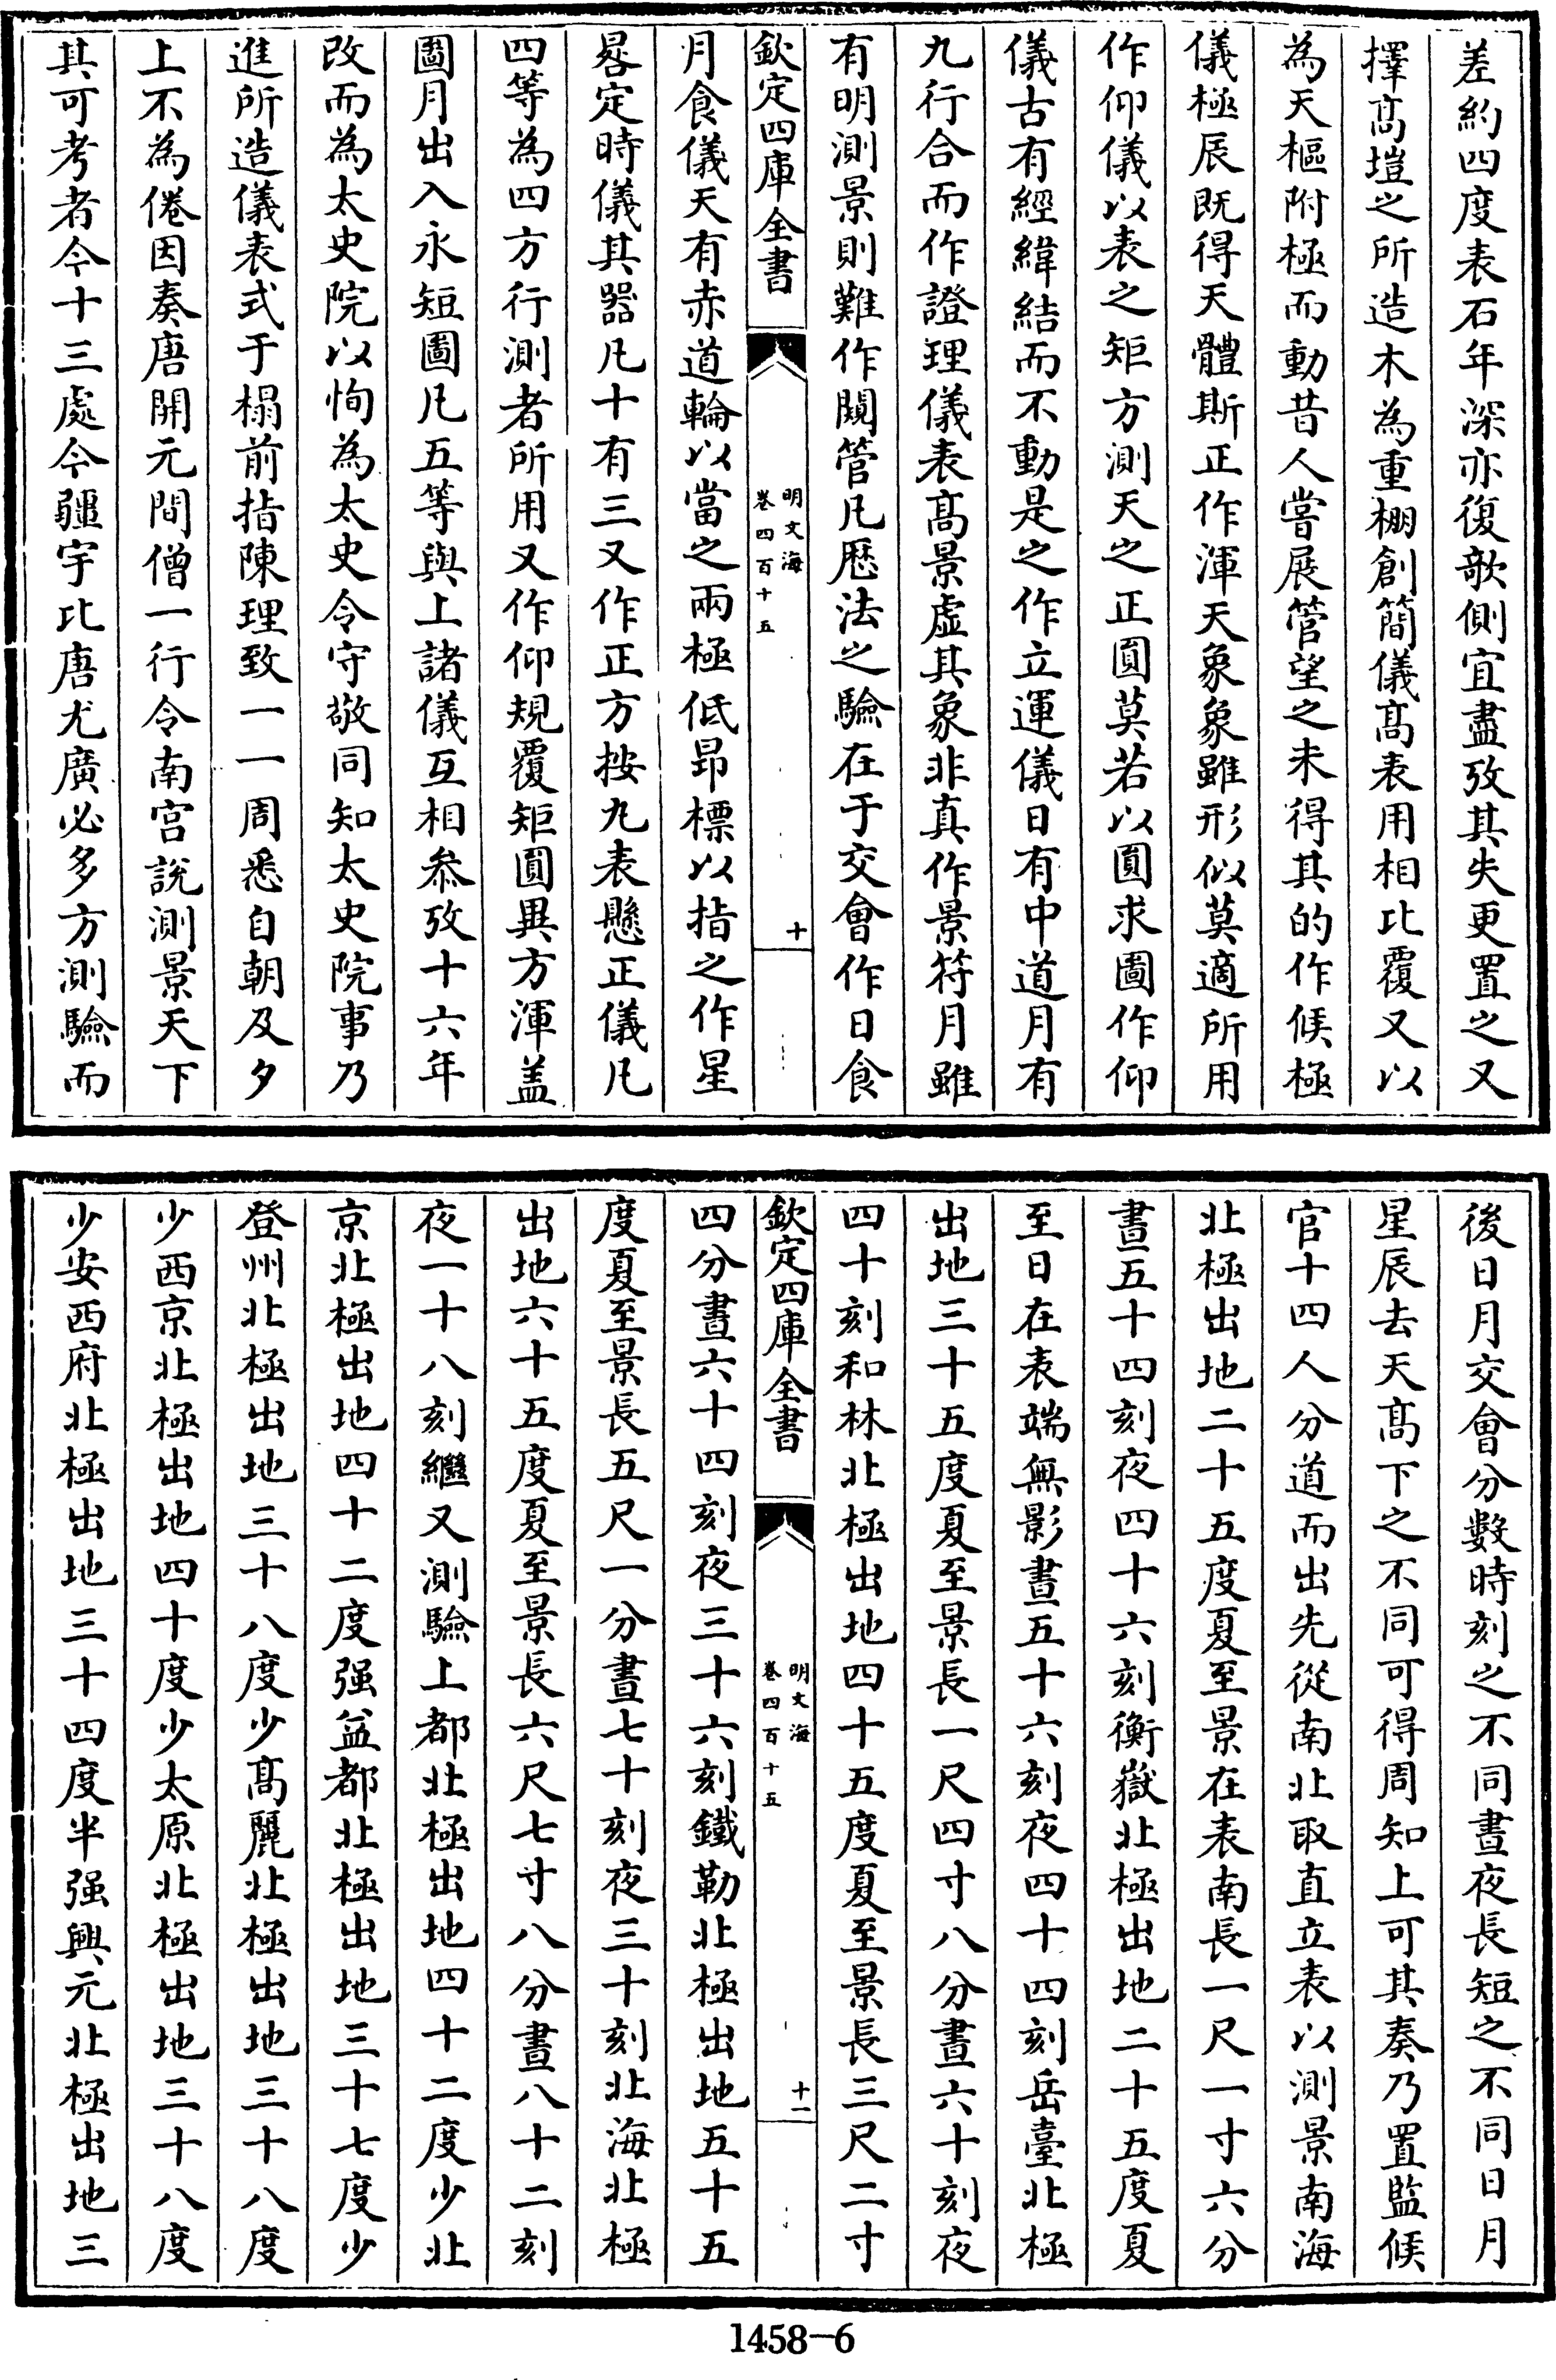 差約四度表石年深亦復欹側宜盡攷其失更置之又
擇高塏之所造木為重棚創簡儀高表用相比覆又以
為天樞附極而動昔人嘗展管望之未得其的作候極
儀極辰既得天體斯正作渾天象象雖形似莫適所用
作仰儀以表之矩方測天之正圓莫若以圓求圖作仰
儀古有經緯結而不動是之作立運儀日有中道月有
九行合而作證理儀表高景虛其象非真作景符月雖
有明測景則難作闚管凡厯法之驗在于交會作日食
欽定四庫全書
明文海
卷四百十五
十
月食儀天有赤道輪以當之兩極低昻標以指之作星
晷定時儀其器凡十有三又作正方按九表懸正儀凡
四等為四方行測者所用又作仰規覆矩圓異方渾盖
圖月出入永短圖凡五等與上諸儀互相叅攷十六年
改而為太史院以恂為太史令守敬同知太史院事乃
進所造儀表式于榻前指陳理致一一周悉自朝及夕
上不為倦因奏唐開元間僧一行令南宮說測景天下
其可考者今十三處今疆宇比唐尤廣必多方測驗而
後日月交會分數時刻之不同晝夜長短之不同日月
星辰去天高下之不同可得周知上可其奏乃置監候
官十四人分道而出先從南北取直立表以測景南海
北極出地二十五度夏至景在表南長一尺一寸六分
晝五十四刻夜四十六刻衡嶽北極出地二十五度夏
至日在表端無影晝五十六刻夜四十四刻岳臺北極
出地三十五度夏至景長一尺四寸八分晝六十刻夜
四十刻和林北極出地四十五度夏至景長三尺二寸
欽定四庫全書
明文海
卷四百十五
十一
四分晝六十四刻夜三十六刻鐵勒北極出地五十五
度夏至景長五尺一分晝七十刻夜三十刻北海北極
出地六十五度夏至景長六尺七寸八分晝八十二刻
夜一十八刻繼又測驗上都北極出地四十二度少北
京北極出地四十二度强益都北極出地三十七度少
登州北極出地三十八度少高麗北極出地三十八度
少西京北極出地四十度少太原北極出地三十八度
少安西府北極出地三十四度半强興元北極出地三
1458—6